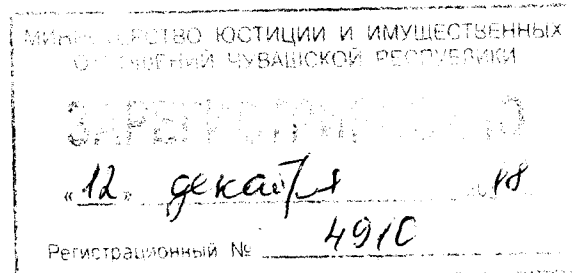 МИНИСТЕРСТВО ЮСТИЦИИ И ИМУЩЕСТВЕННЫХ
ОТНОШЕНИЙ ЧУВАШСКОЙ РЕСПУБЛИКИ
ЗАРЕГИСТРИРОВАНО
«12» декабря 18
Регистрационный № 4910